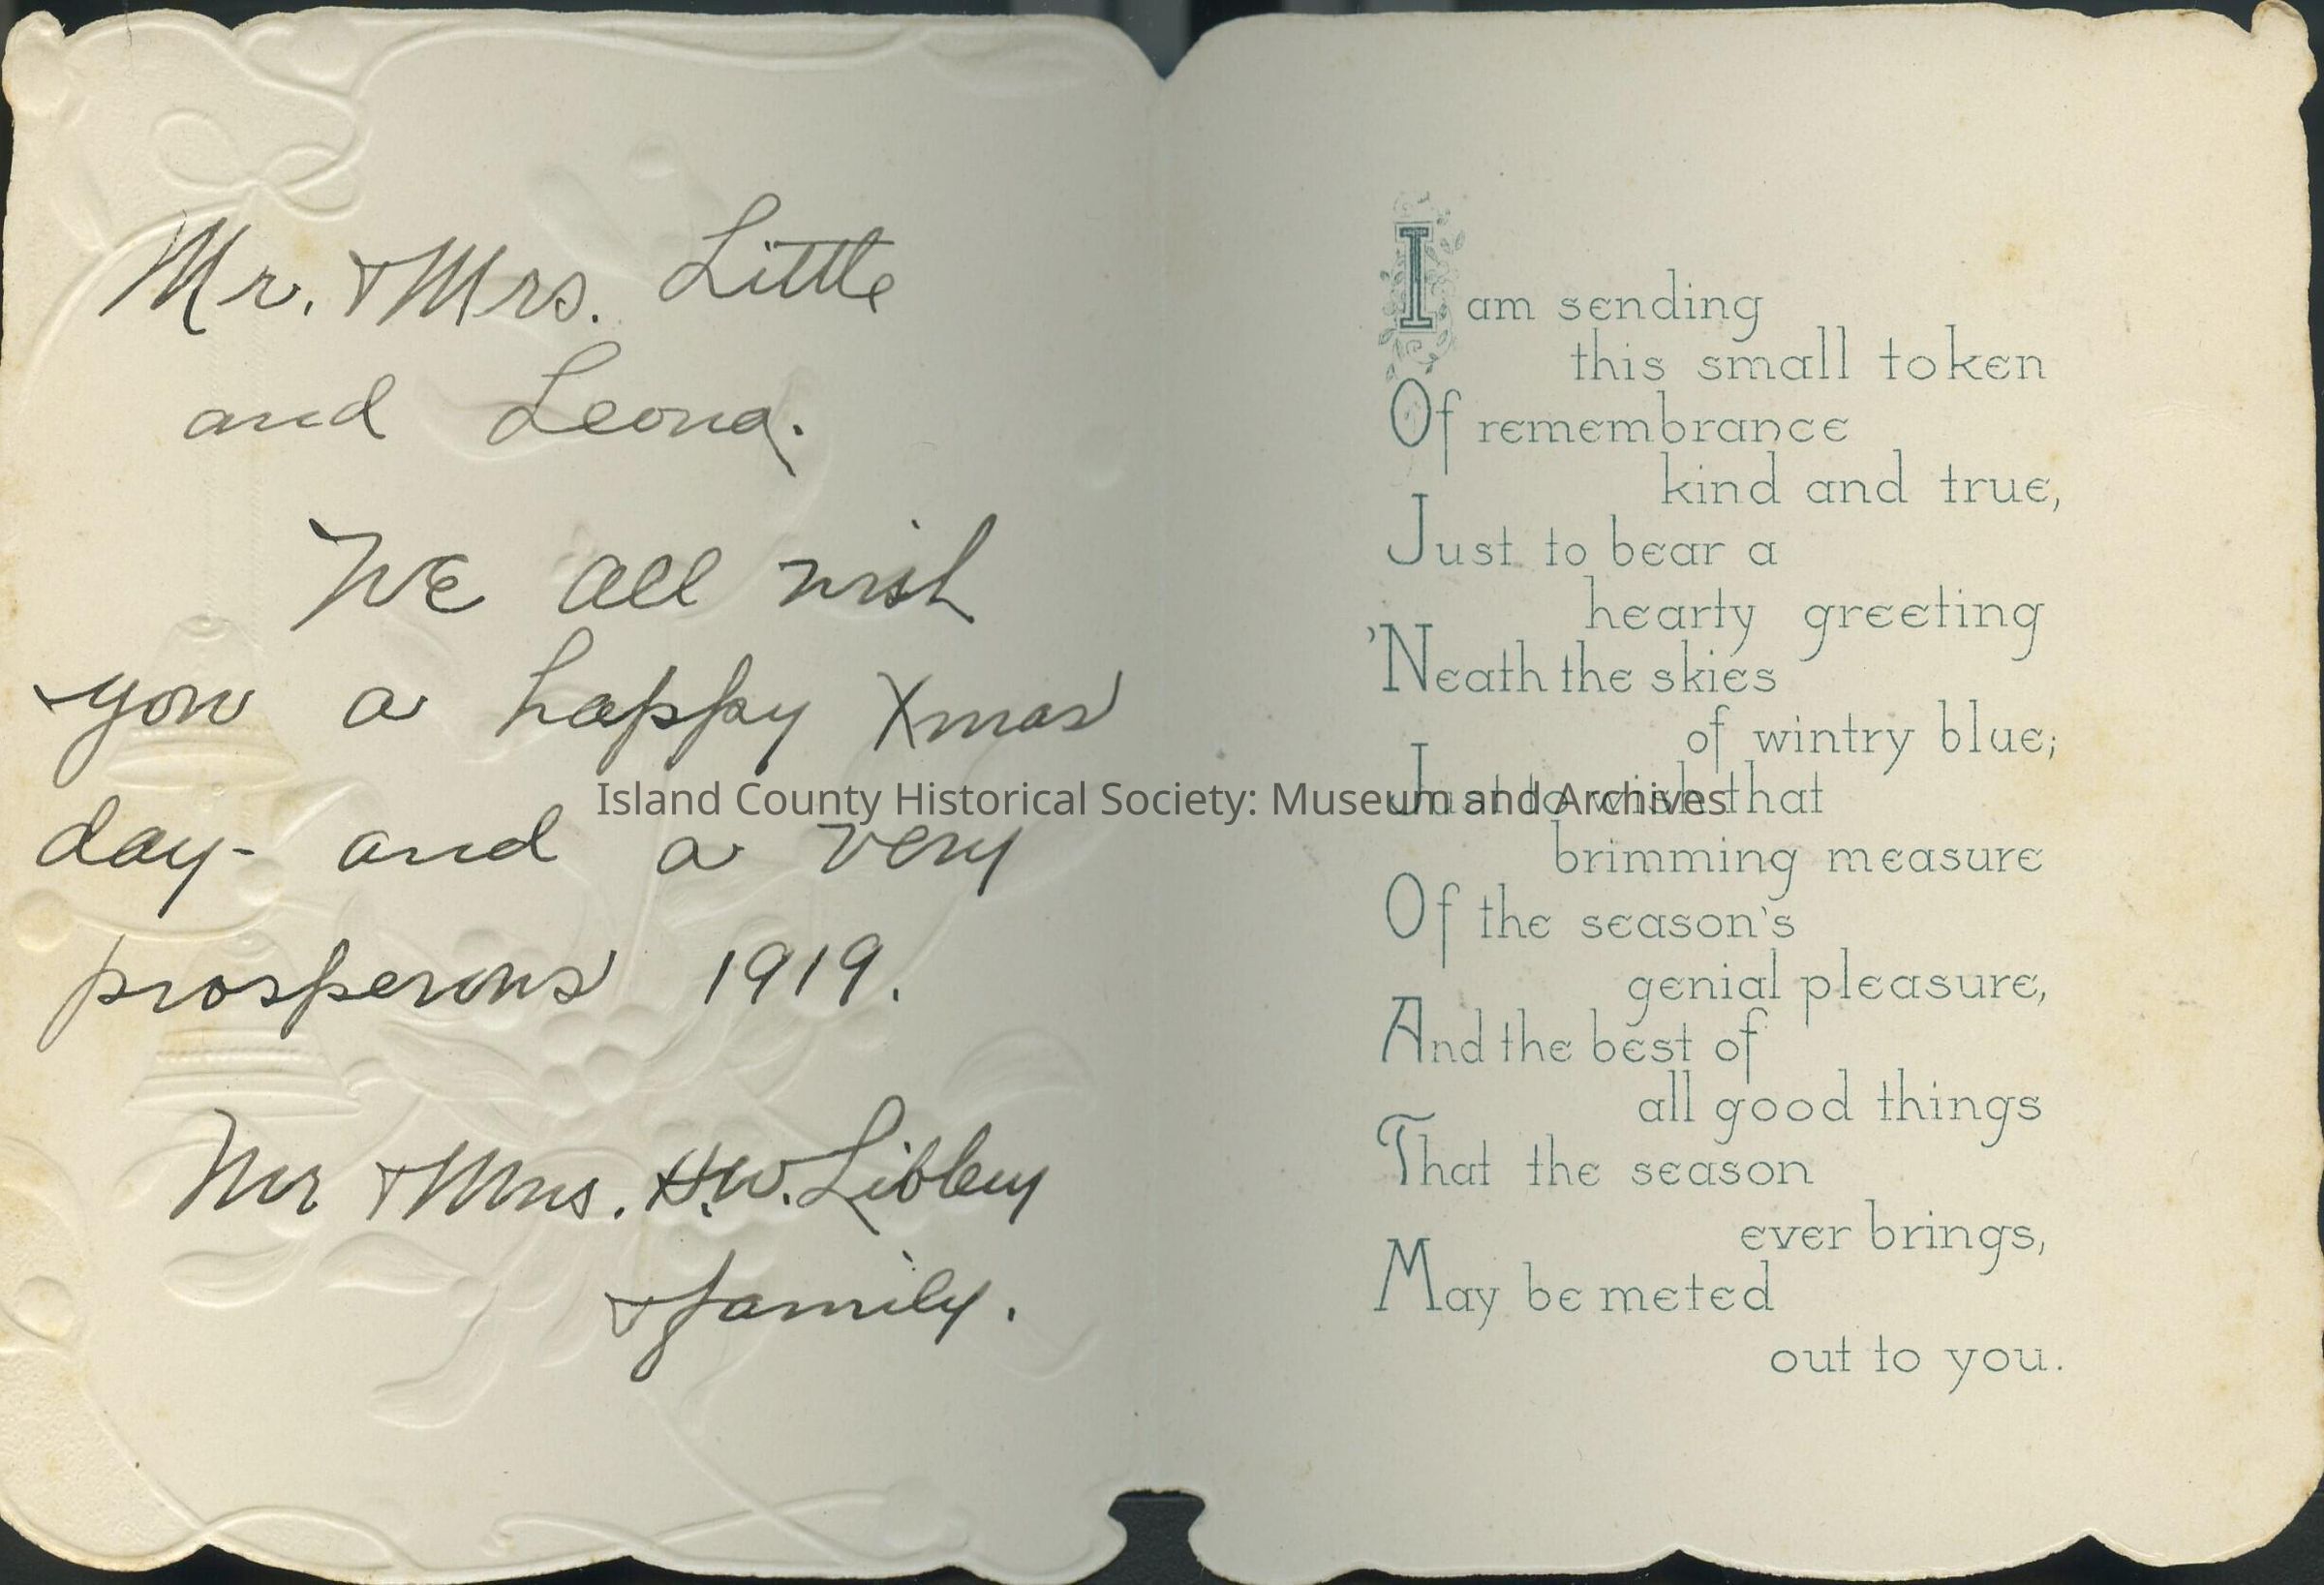 Mr. & Mrs. Little
and Leona.
We all wish
you a happy Xmas
day- and a very
prosperous 1919.
Mr & Mrs. H.W. Libbey
& family.
I am sending
this small token
Of remembrance
kind and true,
Just to bear a
hearty greeting
'Neath the skies
of wintry blue;
Just to wish that
brimming measure
Of the season's
genial pleasure,
And the best of
all good things
That the season
ever brings,
May be meted
out to you.
Island County Historical Society: Museum and Archives